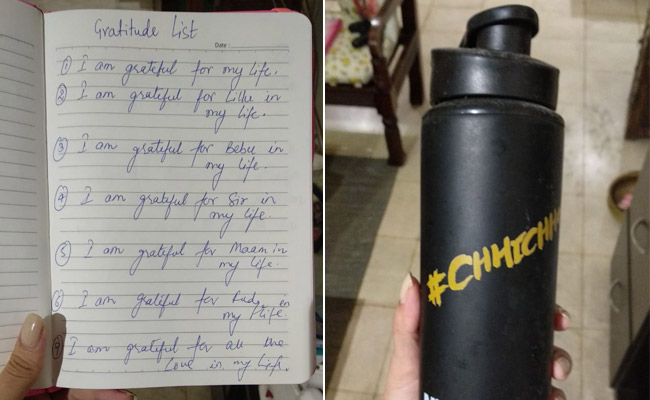 Gratitude List
Date:
① I am grateful for my life.
② I am grateful for Lillu in
my life.
③ I am grateful for Bebu in
my life.
④ I am grateful for Sir in
my life.
⑤ I am grateful for Maam in
my life.
⑥ I am grateful for Fudge in
my life.
⑦ I am grateful for all the
Love in my Life.
#CHHICHH